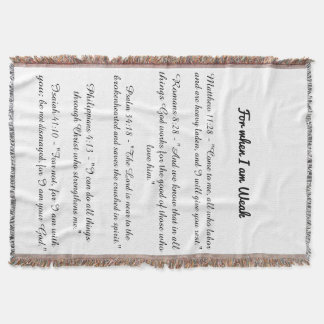 For when I am Weak
Matthew 11:28 - "Come to me, all who labor
and are heavy laden, and I will give you rest."
Romans 8:28 - "And we know that in all
things God works for the good of those who
love him."
Psalm 34:18 - "The Lord is near to the
brokenhearted and saves the crushed in spirit."
Philippians 4:13 - "I can do all things
through Christ who strengthens me."
Isaiah 41:10 - "Fear not, for I am with
you; be not dismayed, for I am your God."